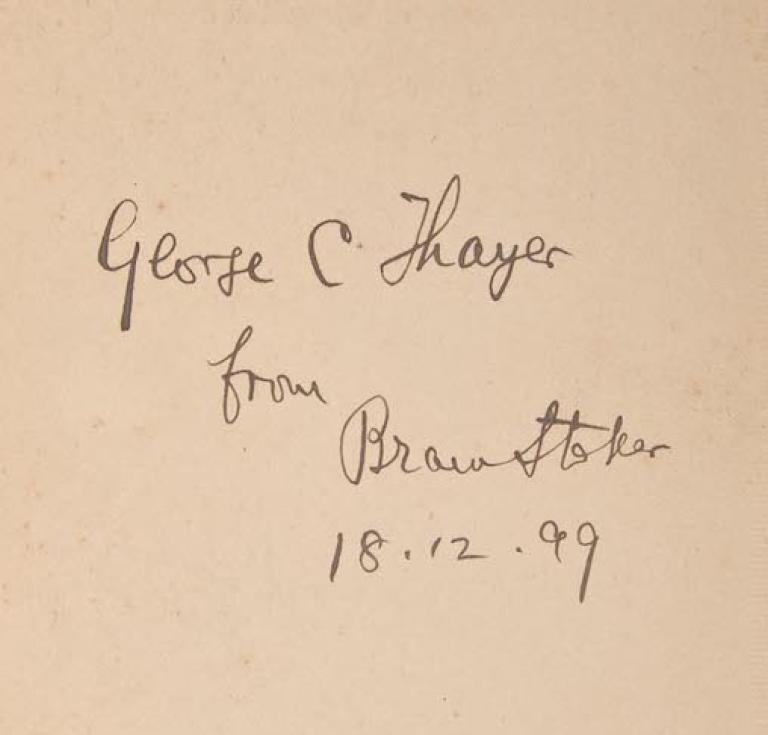 George C. Thayer
from
Bram Stoker
18.12.99